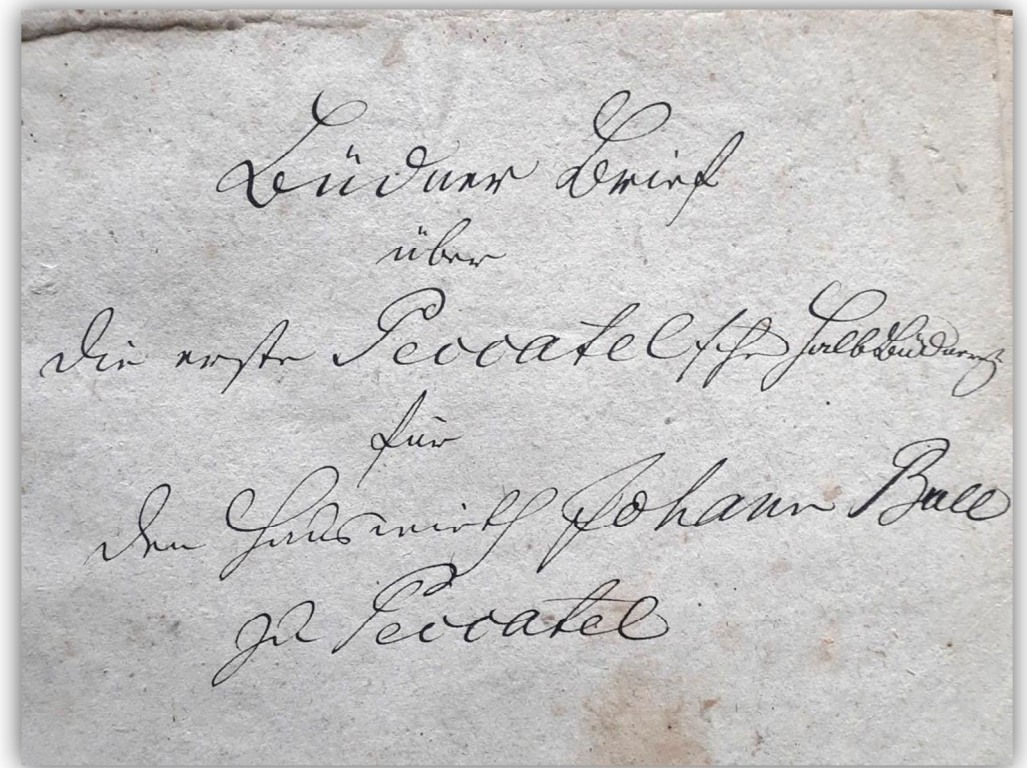 Büdner Brief
über
die erste Peccatelsche HalbBüdnerei
für
den Hauswirth Johann Bull
zu Peccatel